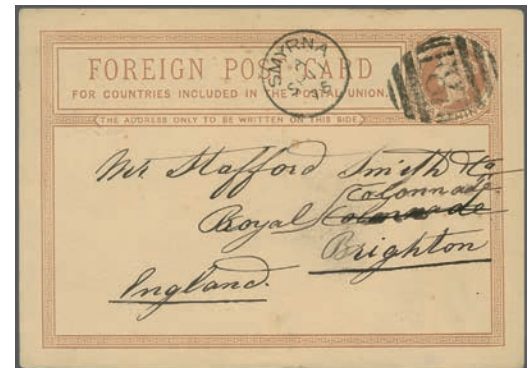 FOREIGN POST CARD
FOR COUNTRIES INCLUDED IN THE POSTAL UNION.
(THE ADDRESS ONLY TO BE WRITTEN ON THIS SIDE)
SMYRNA
Mr Stafford Smith & Co
Colonnade
Royal Colonnade
Brighton
England.